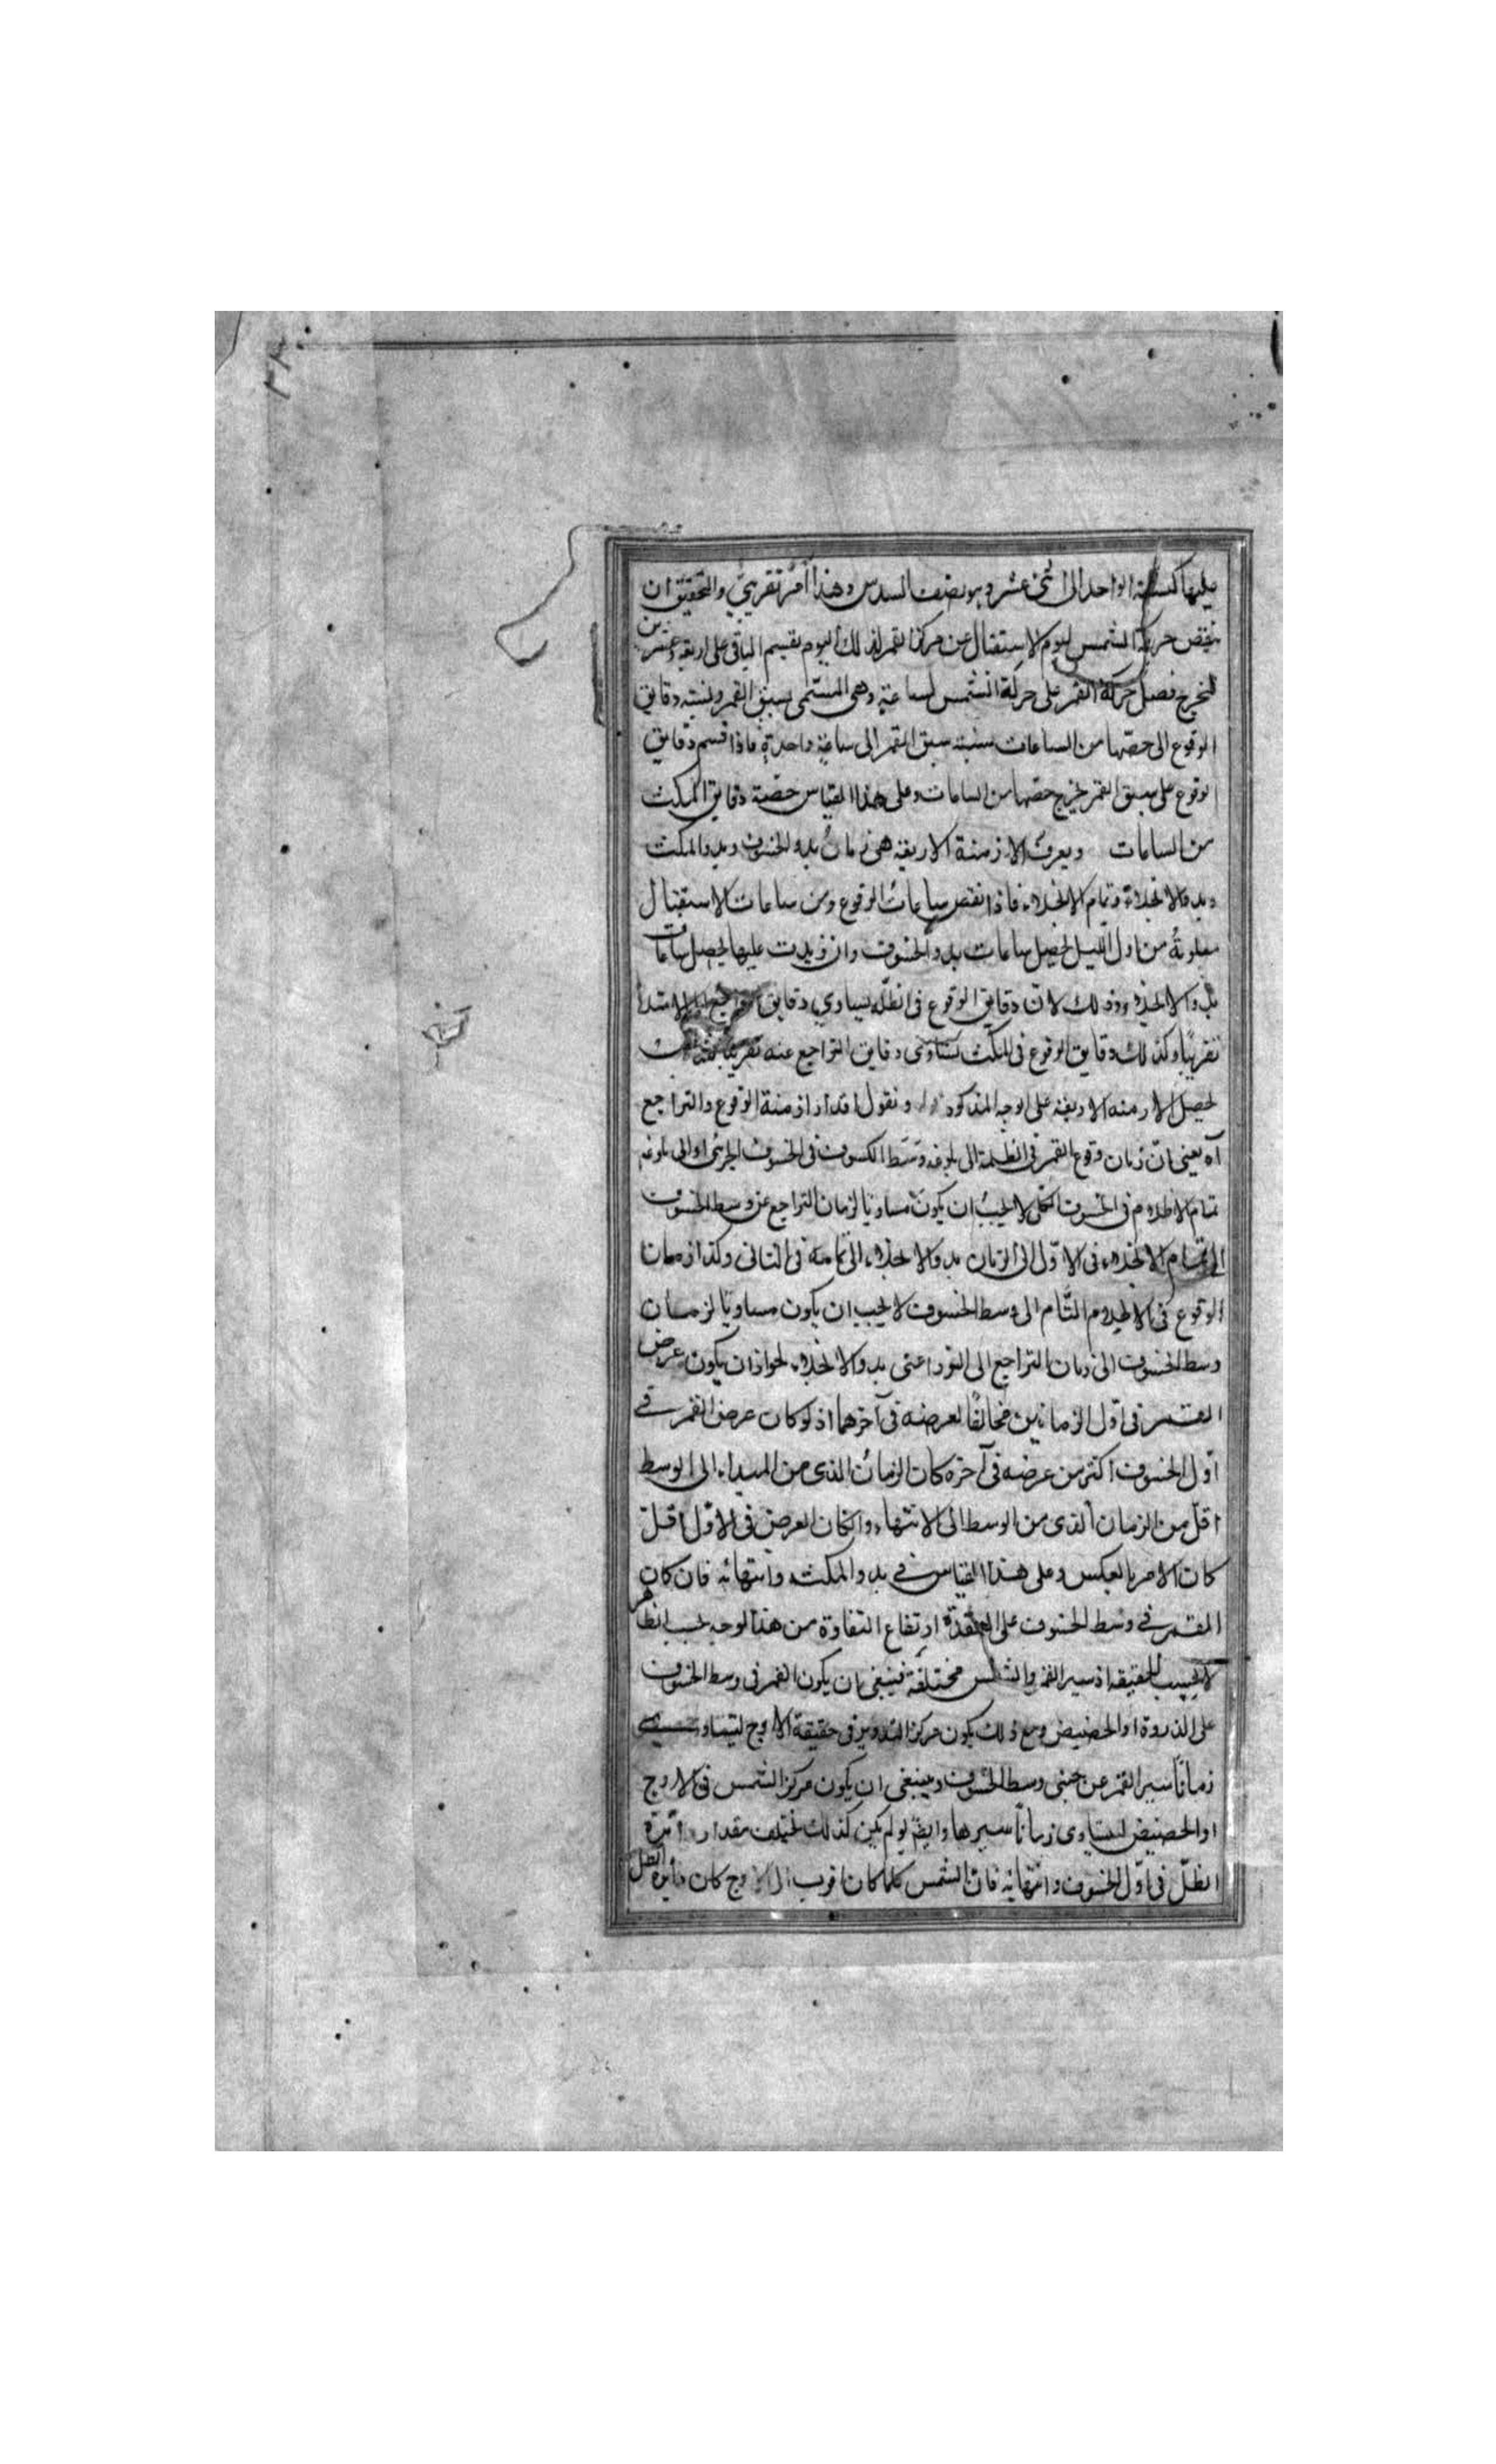 عليها كنسبة الواحد الى اثنى عشر وهو نصف السدس وهذا امر تقريبي والتحقيق ان
ينقص حركة الشمس ليوم الاستقبال عن حركة القمر لذلك اليوم يقسم الباقى على اربعة وعشرين
ليخرج فضل حركة القمر على حركة الشمس لساعة وهى المسمى بسبق القمر ونسبة دقايق
الوقوع الى حصتها من الساعات كنسبة سبق القمر الى ساعة واحدة فاذا قسم دقايق
الوقوع على سبق القمر يخرج حصتها من الساعات وعلى هذا القياس حصة دقايق المكث
من الساعات ويعرف الازمنة الاربعة هى زمان بدو الخسوف وبدو المكث
وبدو الانجلاء وتمام الانجلاء فاذا نقص ساعات الوقوع من ساعات الاستقبال
معلومة من اول الليل يحصل ساعات بدو الخسوف وان زيدت عليها يحصل ساعات
بدو الانجلاء وذلك لان دقايق الوقوع فى الظل يساوى دقايق
تقريبا وكذلك دقايق الوقوع فى المكث يساوى دقايق التراجع عنه تقريبا
يحصل الازمنه الاربعة على الوجه المذكور ونقول اقدار ازمنة الوقوع والتراجع
آه يعنى ان زمان وقوع القمر فى الظلمة الى بلوغه وسط الكسوف فى الخسوف الجزئى او الى بلوغه
تمام الاظلام فى الخسوف الكلى لا يجب ان يكون مساويا لزمان التراجع عن وسط الخسوف
الى تمام الانجلاء فى الاول الى الزمان بدو الانجلاء الى تمامه فى الثانى وكذا زمانا
الوقوع فى الاظلام التام الى وسط الخسوف لا يجب ان يكون مساويا لزمان
وسط الخسوف الى زمان التراجع الى النور اعنى بدو الانجلاء لجواز ان يكون عرض
القمر فى اول الزمانين مخالفا لعرضه فى آخرهما اذ لو كان عرض القمر فى
اول الخسوف اكثر من عرضه فى آخره كان الزمان الذى من المبداء الى الوسط
اقل من الزمان الذى من الوسط الى الانتهاء وان كان العرض فى الاول اقل
كان الامر بالعكس وعلى هذا القياس فى بدو المكث وانتهائه فان كان
القمر فى وسط الخسوف على العقدة ارتفاع التفاوة من هذا الوجه بحسب الظاهر
لا بحسب الحقيقه اذ سير القمر والشمس مختلفة فينبغى ان يكون القمر فى وسط الخسوف
على الذروة او الحضيض ومع ذلك يكون مركز التدوير فى حقيقة الاوج ليتساوى
زمانا سير القمر عن جنبى وسط الخسوف وينبغى ان يكون مركز الشمس فى الاوج
او الحضيض ليتساوى زمانا سيرها وايضا لو لم يكن كذلك يختلف مقدار دائرة
الظل فى اول الخسوف وانتهائه فان الشمس كلما كان اقرب الى الاوج كان دايرة الظل